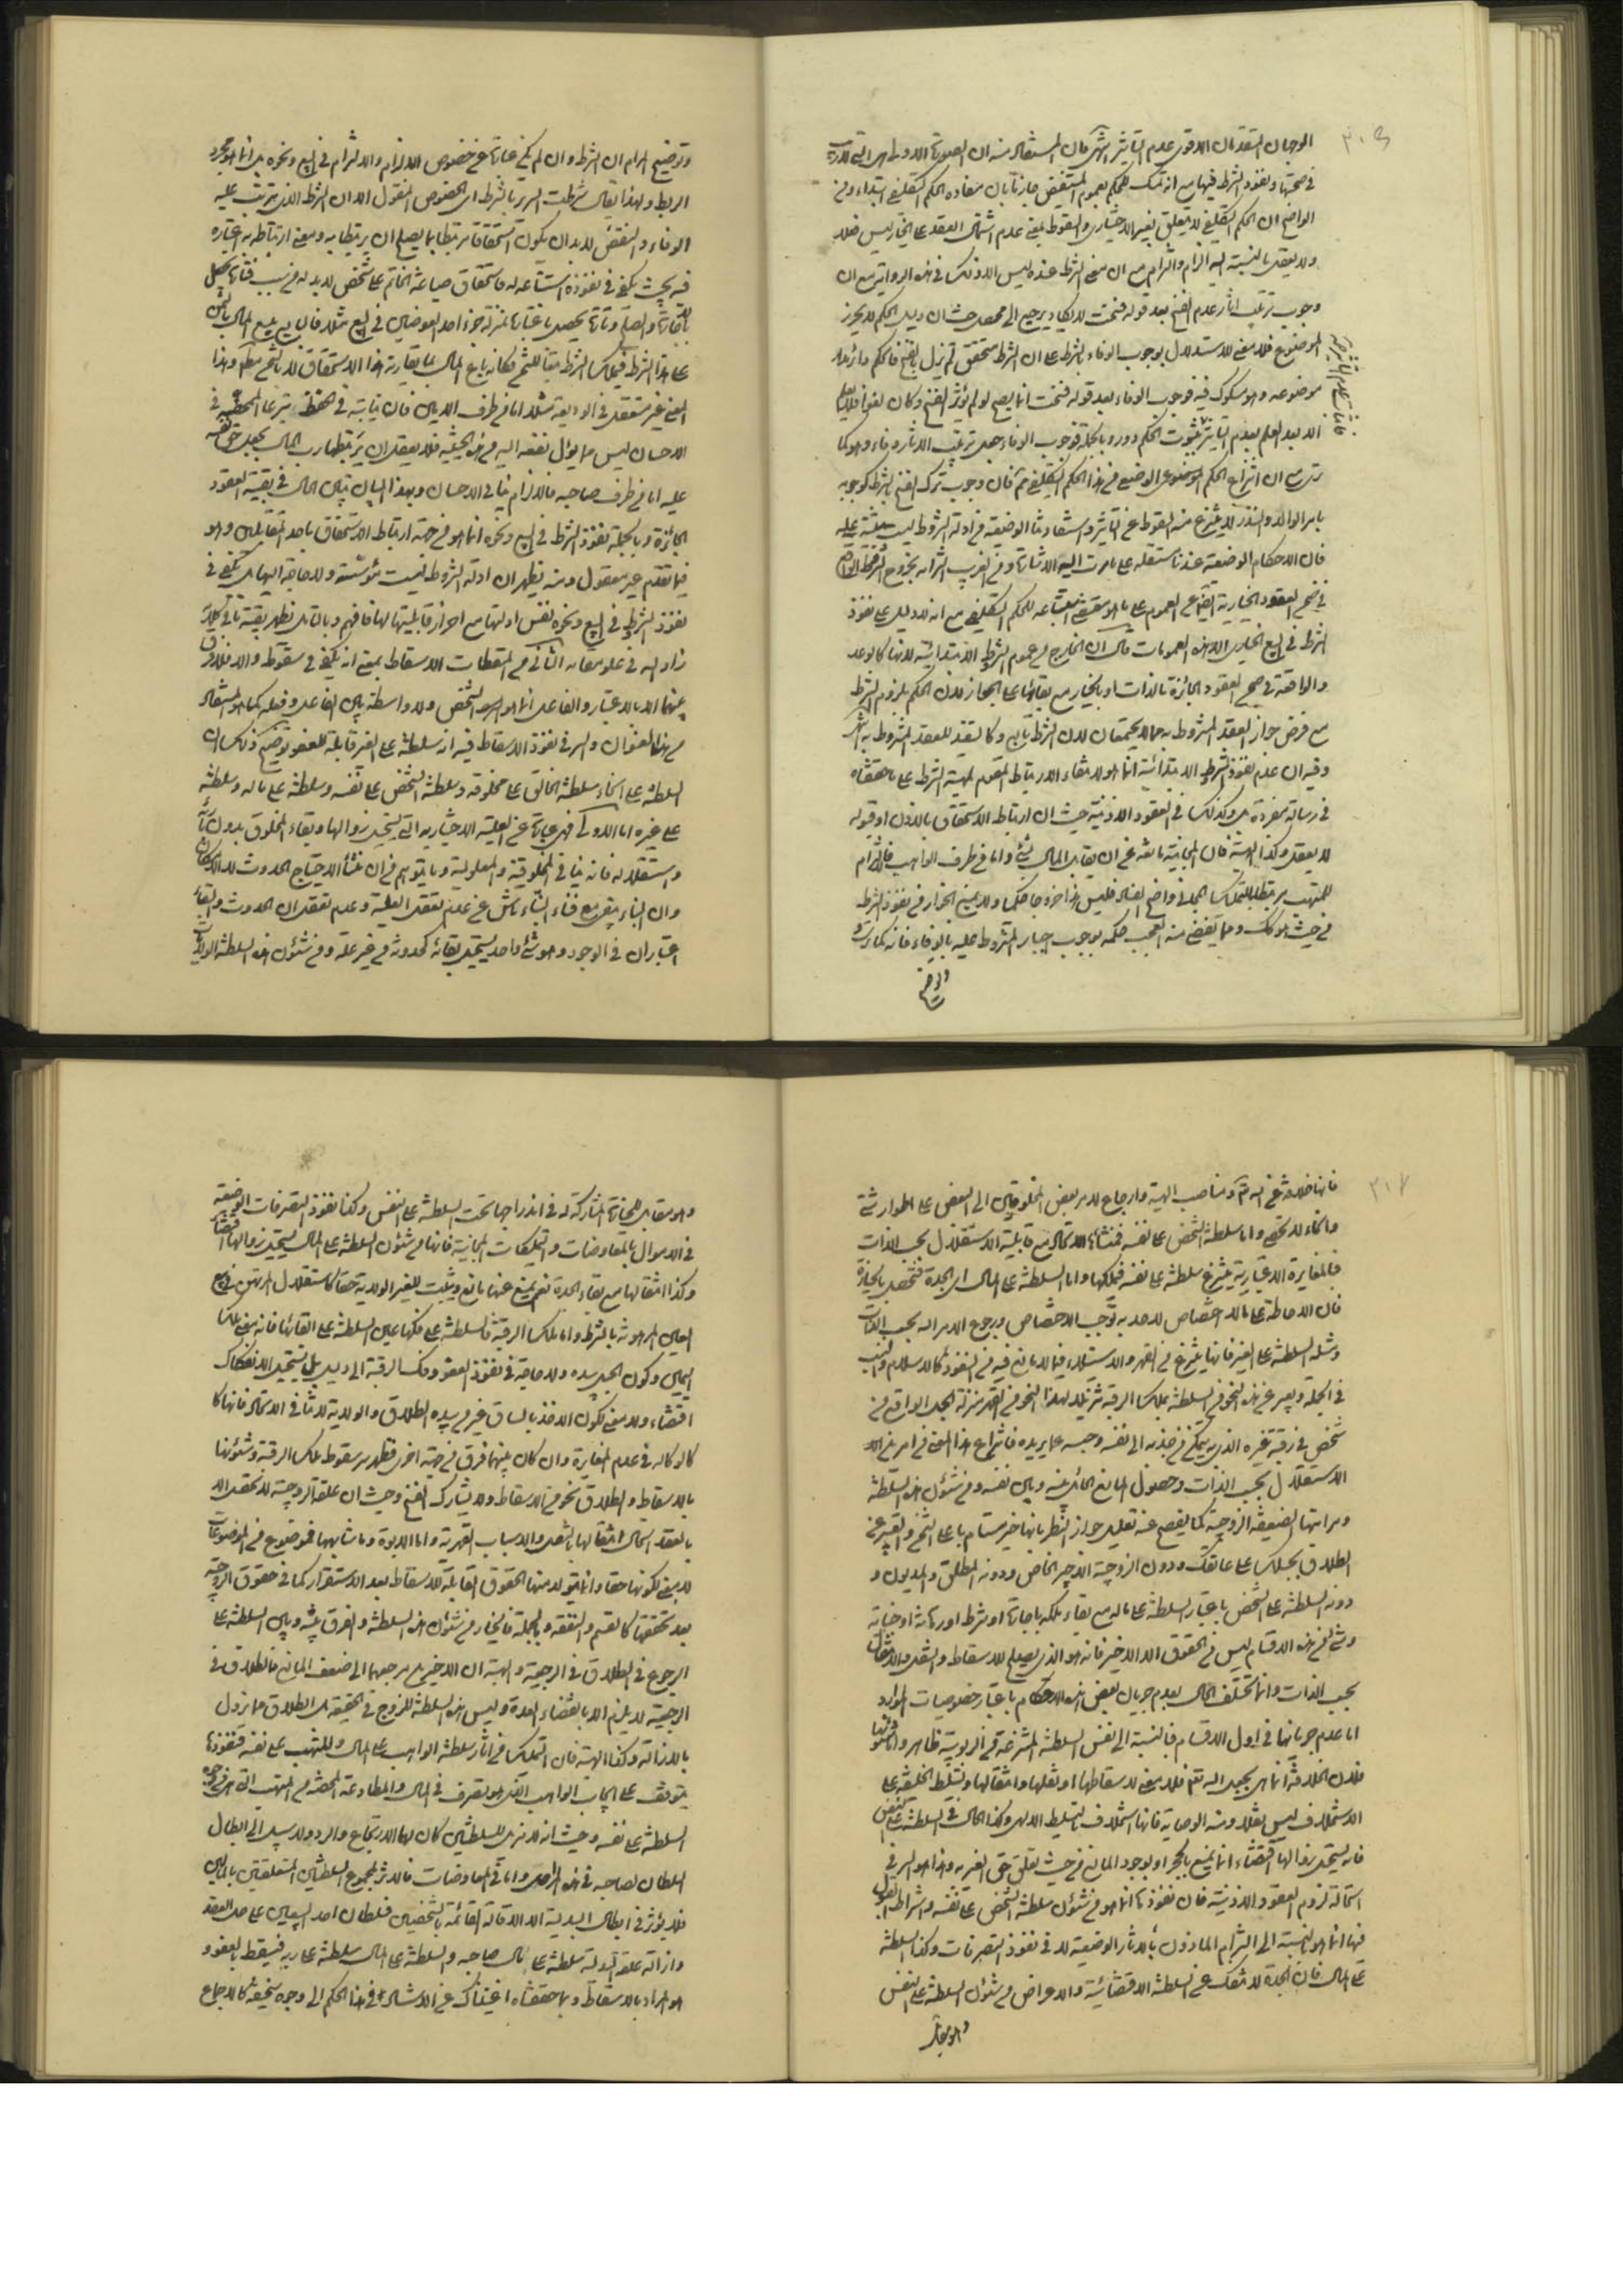 ٣٠٩
الوجهان المتقدمان الاقوى عدم التأثير انتهى فان المستفاد منه ان الصورة الاولى هى التى
فى صحتها ونفوذ الشرط فيها مع انه تمسك للحكم بعموم المستفيض جازما بان مفاده الحكم التكليفى ابتداء ومن
الواضح ان الحكم التكليفى لا يتعلق بغير الاختيارى والسقوط بمعنى عدم اشتمال العقد على الخيار ليس فعلا
ولا يعقل بالنسبة اليه الزام والتزام مع ان معنى الشرط عنده ليس الا ذلك فى هذه الرواية مع ان
وجوب ترتيب اثار عدم الفسخ بعد قوله فسخت لا يكاد يرجع الى محصل حيث ان دليل الحكم لا يحرز
الموضوع فلا معنى للاستدلال بوجوب الوفاء بالشرط على ان الشرط متحقق لم يزل بالفسخ فالحكم دائر مدار
موضوعه وهو مشكوك فيه فوجوب الوفاء بعد قوله فسخت انما يصح لو لم يؤثر الفسخ وكان لغوا فلا
الا بعد العلم بعدم التأثير فثبوت الحكم دور وبالجملة فوجوب الوفاء هل ترتيب الاثار وفاء وهو كما
ترى مع ان انتزاع الحكم الوضعى من هذا الحكم التكليفى ثم فان وجوب ترك الفسخ بالشرط كوجوبه
بامر الوالد والنذر لا ينتزع منه السقوط عن التأثير واستفادتنا الوضعية من ادلة الشروط ليست مبتنية عليه
فان الاحكام الوضعية عندنا مستقلة على ما مرت اليه الاشارة ومن الغريب التزامه بخروج
فى ضمن العقود الخيارية ايضا عن العموم على ما هو مقتضى استتباعه للحكم التكليفى مع انه لا دليل على نفوذ
الشرط فى البيع الخيارى الا هذه العمومات قال ان الخارج من عموم الشرط الابتدائية لانها كالوعد
والواقعة فى ضمن العقود الجائزة بالذات او بالخيار مع بقائها على الجواز لان الحكم بلزوم الشرط
مع فرض جواز العقد المشروط به مما لا يجتمعان لان الشرط تابع وكالتقييد للعقد المشروط به انتهى
وفيه ان عدم نفوذ الشرط الابتدائية انما هو لانتفاء الارتباط المقوم لمهية الشرط على ما حققناه
فى رسالة مفردة بل وكذلك فى العقود الاذنية حيث ان ارتباط الاستحقاق بالاذن او قوله
لا يعقل وكذا الهبة فان المجانية مانعة عن ان يقابل المال بشئ واما من طرف الواهب فالالتزام
للمتهب يرتبط بالتمليك المجانى واضح الفساد فليس هذا خروجا حكما ولا يمنع الجواز من نفوذ الشرط
من حيث هو كذلك ومما يقضى منه العجب حكمه بوجوب اجبار المشروط عليه بالوفاء فانه كما ترى
وتوضيح
وتوضيح المرام ان الشرط وان لم يكن عبارة عن خصوص الالزام والالتزام فى البيع ونحوه بل انما هو مجرد
الربط ولهذا يقال شرطت السرير بالشرط اى الخصوص المفتول الا ان الشرط الذى يترتب عليه
الوفاء والنقض لا بد ان يكون استحقاقا مرتبطا بما يصلح ان يرتبط به ومعنى ارتباطه به اعتباره
فيه بحيث يكفى فى نفوذه استتباعه له فاستحقاق صياغة الخاتم على شخص لا بد له من سبب فتارة يحصل
بالاجارة والصلح وتارة يحصل باعتباره بمنزلة جزء احد العوضين فى البيع مثلا فان بيع المال بالثمن
على هذا الشرط
المعنى غير متعقل فى الوديعة مثلا اما من طرف الامين فان نيابته فى الحفظ تبرعا
الاحسان ليس مما يؤل نفعه اليه من هذه الحيثية فلا يعقل ان يرتبط بها رب المال بجعل حق لنفسه
عليه اما من طرف صاحبه فالالزام ينافى الاحسان وبهذا البيان تبين الحال فى بقية العقود
الجائزة وبالجملة نفوذ الشرط فى البيع ونحوه انما هو من جهة ارتباط الاستحقاق باحد المتقابلين وهو
فيما تقدم غير معقول ومنه يظهر ان ادلة الشروط ليست مؤسسة ولا حاجة اليها بل يكفى فى
نفوذ الشرط فى البيع ونحوه نفس ادلتها مع احراز قابليتها لها فافهم وبالتأمل يظهر بقية ما فى كلامه
زاد الله فى علو مقامه الثانى من المسقطات الاسقاط بمعنى انه يكفى فى سقوطه ولا فرق
بينهما الا بالاعتبار والفاعل انما هو الشخص ولا واسطة بين الفاعل وفعله كما هو المستفاد
من هذا العنوان والسر فى نفوذ الاسقاط فيه انه سلطنة على الغير قابلة للعفو توضيح ذلك ان
السلطنة على انحاء سلطنة الخالق على مخلوقه وسلطنة الشخص على نفسه وسلطنته على ماله وسلطنته
على غيره اما الاولى فهى عبارة عن العلية الاختيارية التى يستحيل زوالها وبقاء المخلوق بدون
واستقلاله فانه ينافى المخلوقية والمعلولية وما يتوهم من ان منشأ الاحتياج الحدوث لا الامكان
وان البناء يبقى بعد فناء البناء ناش عن عدم تعقل العلية وعدم تعقل ان الحدوث والبقاء
اعتباران فى الوجود وهو شئ واحد يستحيل بقائه كحدوثه من غير علة ومن شئون هذه السلطنة الولاية
٣١٠
فانها خلافة عن الله تع ومناصب الهية وارجاع لامر بعض المخلوقين الى البعض على اطوار شتى
وانحاء لا تحصى واما سلطنة الشخص على نفسه فمنشأه الاتحاد مع قابلية الاستقلال بحسب الذات
فالمغايرة الاعتبارية ينتزع سلطنة على نفسه فيملكها واما السلطنة على المال اى الجدة فتحصل بالحيازة
فان الاحاطة على ما لا اختصاص لاحد به توجب الاختصاص ورجوع الامر اليه بحسب الذات
ومثله السلطنة على الغير فانها ينتزع من القهر والاستيلاء فيما لا مانع فيه من النفوذ كالاسلام والنسب
فى الجملة ويعبر عن هذه النحو من السلطنة بملك الرقبة تنزيلا لهذا النحو من القهر منزلة الحبل الواقع من
شخص فى رقبة غيره الذى به يتمكن من جذبه الى نفسه وحبسه عما يريده فانتزاع هذا المعنى من امرين
الاستقلال بحسب الذات وحصول المانع الحائل بينه وبين نفسه ومن شئون هذه السلطنة
ومراتبها الضعيفة الزوجية كما يفصح عنه تعليل جواز النظر بانها خير مستام باعلى الثمن والتعبير عن
الطلاق بحبلك على عاتقك ودون الزوجية الاجير الخاص ودونه المطلق والمديون و
دونه السلطنة على الشخص باعتبار السلطنة على ماله مع بقاء ملكه باجارة او شرط او رهانة او خيانة
وشئ من هذه الاقسام ليس من الحقوق الا الاخير فانه هو الذى يصلح للاسقاط والنقل والانتقال
بحسب الذات وانما تختلف الحال بعدم جريان بعض هذه الاحكام باعتبار خصوصيات الموارد
اما عدم جريانها فى اول الاقسام فبالنسبة الى نفس السلطنة المنتزعة من الربوبية ظاهر واما شئونها
فلان الخلافة انما هى بجعل الله تع فلا معنى لاسقاطها او نقلها وانتقالها وتسليط الخليفة على
الاستخلاف ليس نقلا ومنه الوصاية فانها استخلاف لتسليط الالهى وكذا الحال فى السلطنة على النفس
فانه يستحيل زوالها اقتضاء انما يمنع بالحجر او لوجود المانع من حيث تعلق حق الغير به وهذا هو السر فى
استحالة لزوم العقود الاذنية فان نفوذها انما هو من شئون سلطنة الشخص على نفسه واشتراط القبول
فيها انما هو بالنسبة الى التزام المأذون بالاثار الوضعية لا فى نفوذ التصرفات وكذا السلطنة
على المال فان الجدة لا تنفك عن السلطنة الاقتضائية والاعراض من شئون السلطنة على النفس
وهو مقابل
وهو مقابل للحيازة المشاركة له فى اندراجها تحت السلطنة على النفس وكذا نفوذ التصرفات الوضعية
فى الاموال بالمعاوضات والتمليكات المجانية فانها من شئون السلطنة على المال يستحيل زوالها اقتضاء
وكذا انتقالها مع بقاء الجدة نعم يمنع عنها مانع ويثبت للغير الولاية حقا كاستقلال المرتهن فى بيع
العين المرهونة بالشرط واما ملك الرقبة فالسلطنة على فكها عين السلطنة على ابقائها فانه معنى ملك
اليمين وكون الحبل بيده ولا حاجة فى نفوذ العفو وفك الرقبة الى دليل بل يستحيل الانفكاك
اقتضاء ولا معنى لكون الاخذ بالساق غير من بيده الطلاق والولاية لا تنافى الاتحاد فانها كا
كالوكالة فى عدم المغايرة وان كان بينهما فرق من جهة اخرى فظهر سر سقوط ملك الرقبة وشئونها
بالاسقاط والطلاق نحو من الاسقاط ولا يشارك الفسخ وحيث ان علقة الزوجية لا تتحقق الا
بالعقد استحال انتقالها بالنقل والاسباب القهرية واما الابوة وما شابهها فموضوع من الموضوعات
لا معنى لكونها حقا وانما يتولد منها الحقوق القابلة للاسقاط بعد الاستقرار كما فى حقوق الزوجية
بعد تحققها كالقسم والنفقة وبالجملة فالخيار من شئون هذه السلطنة والفرق بينه وبين السلطنة على
الرجوع فى الطلاق فى الرجعية والهبة ان الاخيرين مرجعهما الى ضعف المانع فالطلاق فى
الرجعية لا يلزم الا بانقضاء العدة وليس هذه السلطنة للزوج فى الحقيقة بل الطلاق مما يزول
بالازالة وكذا الهبة فان التمليك من اثار سلطنة الواهب على المال والمتهب على نفسه فنفوذها
يتوقف على ايجاب الواهب الذى هو تصرف فى المال والمطاوعة المحضة من المتهب التى هى من وجوه
السلطنة على نفسه وحيث انه لا مزيل للسلطنتين كان لهما الارتجاع والرد ولا سبيل الى ابطال
السلطان لصاحبه فى هذه المراحل واما فى المعاوضات فالاثر لمجموع السلطنتين المتعلقتين بالمالين
فلا يؤثر فى ابطال البدلية الا الاقالة القائمة بالشخصين فسلطان احد البيعين على حل العقد
وازالة علقة البدلية سلطنة على مال صاحبه والسلطنة على المال سلطنة على ربه فيسقط بالعفو و
هو المراد بالاسقاط وبما حققناه اغنيناك عن الاستناد فى هذا الحكم الى وجوه سخيفة كالاجماع